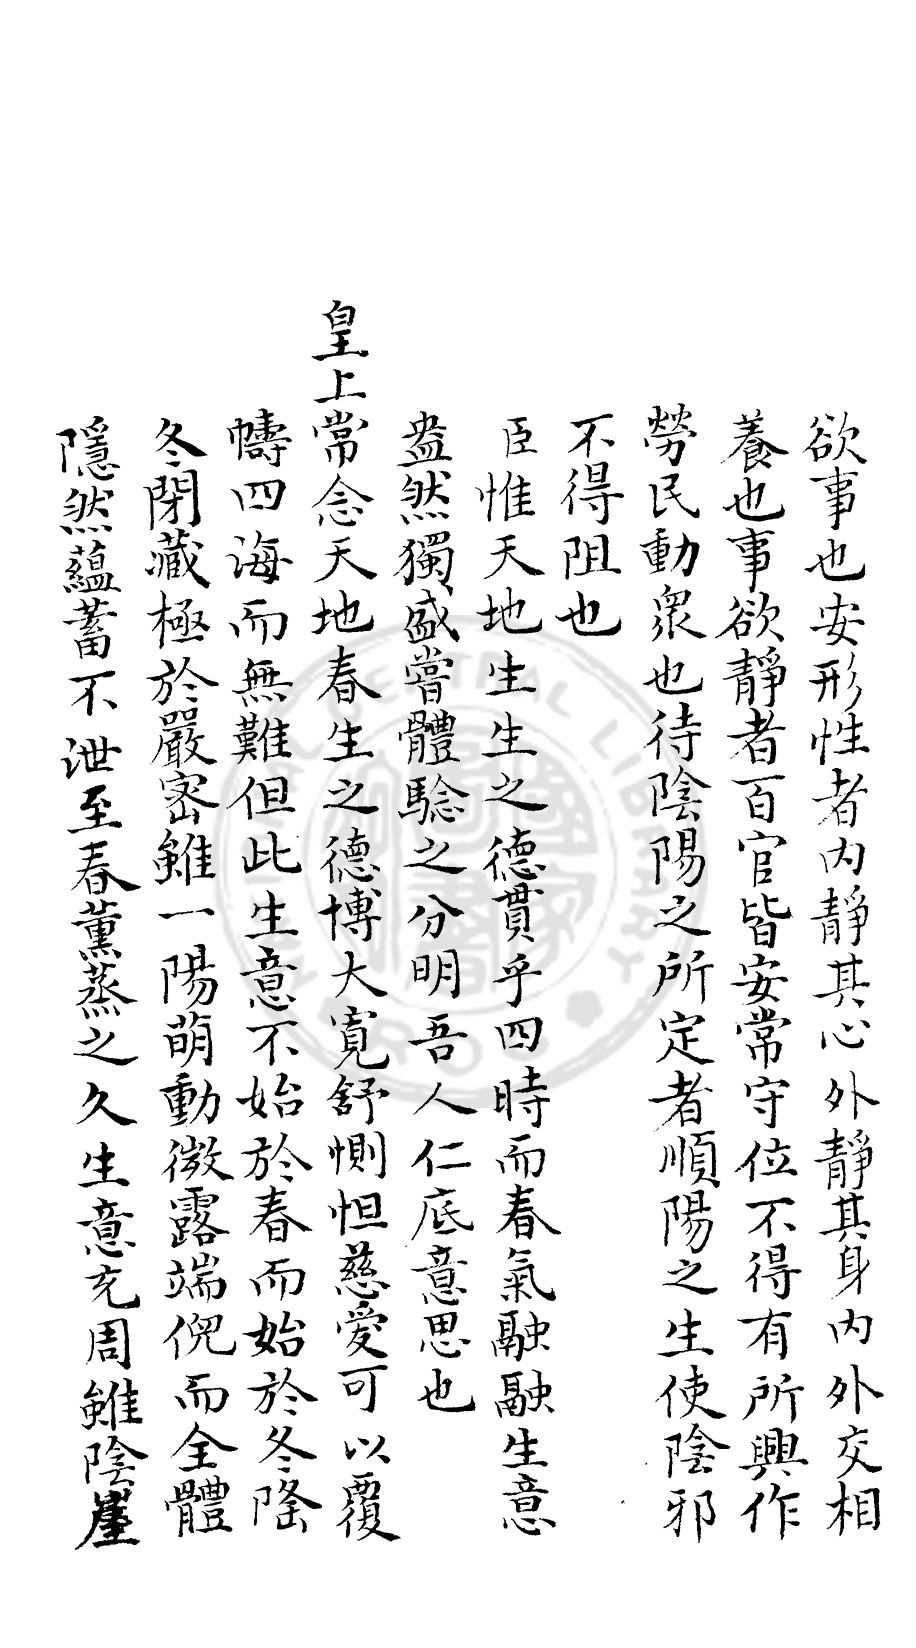 欲事也安形性者內靜其心外靜其身內外交相
養也事欲靜者百官皆安常守位不得有所興作
勞民動衆也待陰陽之所定者順陽之生使陰邪
不得阻也
臣惟天地生生之德貫乎四時而春氣融融生意
盎然獨盛嘗體驗之分明吾人仁底意思也
皇上常念天地春生之德博大寬舒惻怛慈愛可以覆
幬四海而無難但此生意不始於春而始於冬隆
冬閉藏極於嚴密雖一陽萌動微露端倪而全體
隱然蘊蓄不泄至春薰蒸之久生意充周雖陰崖
CENTRAL LIBRARY